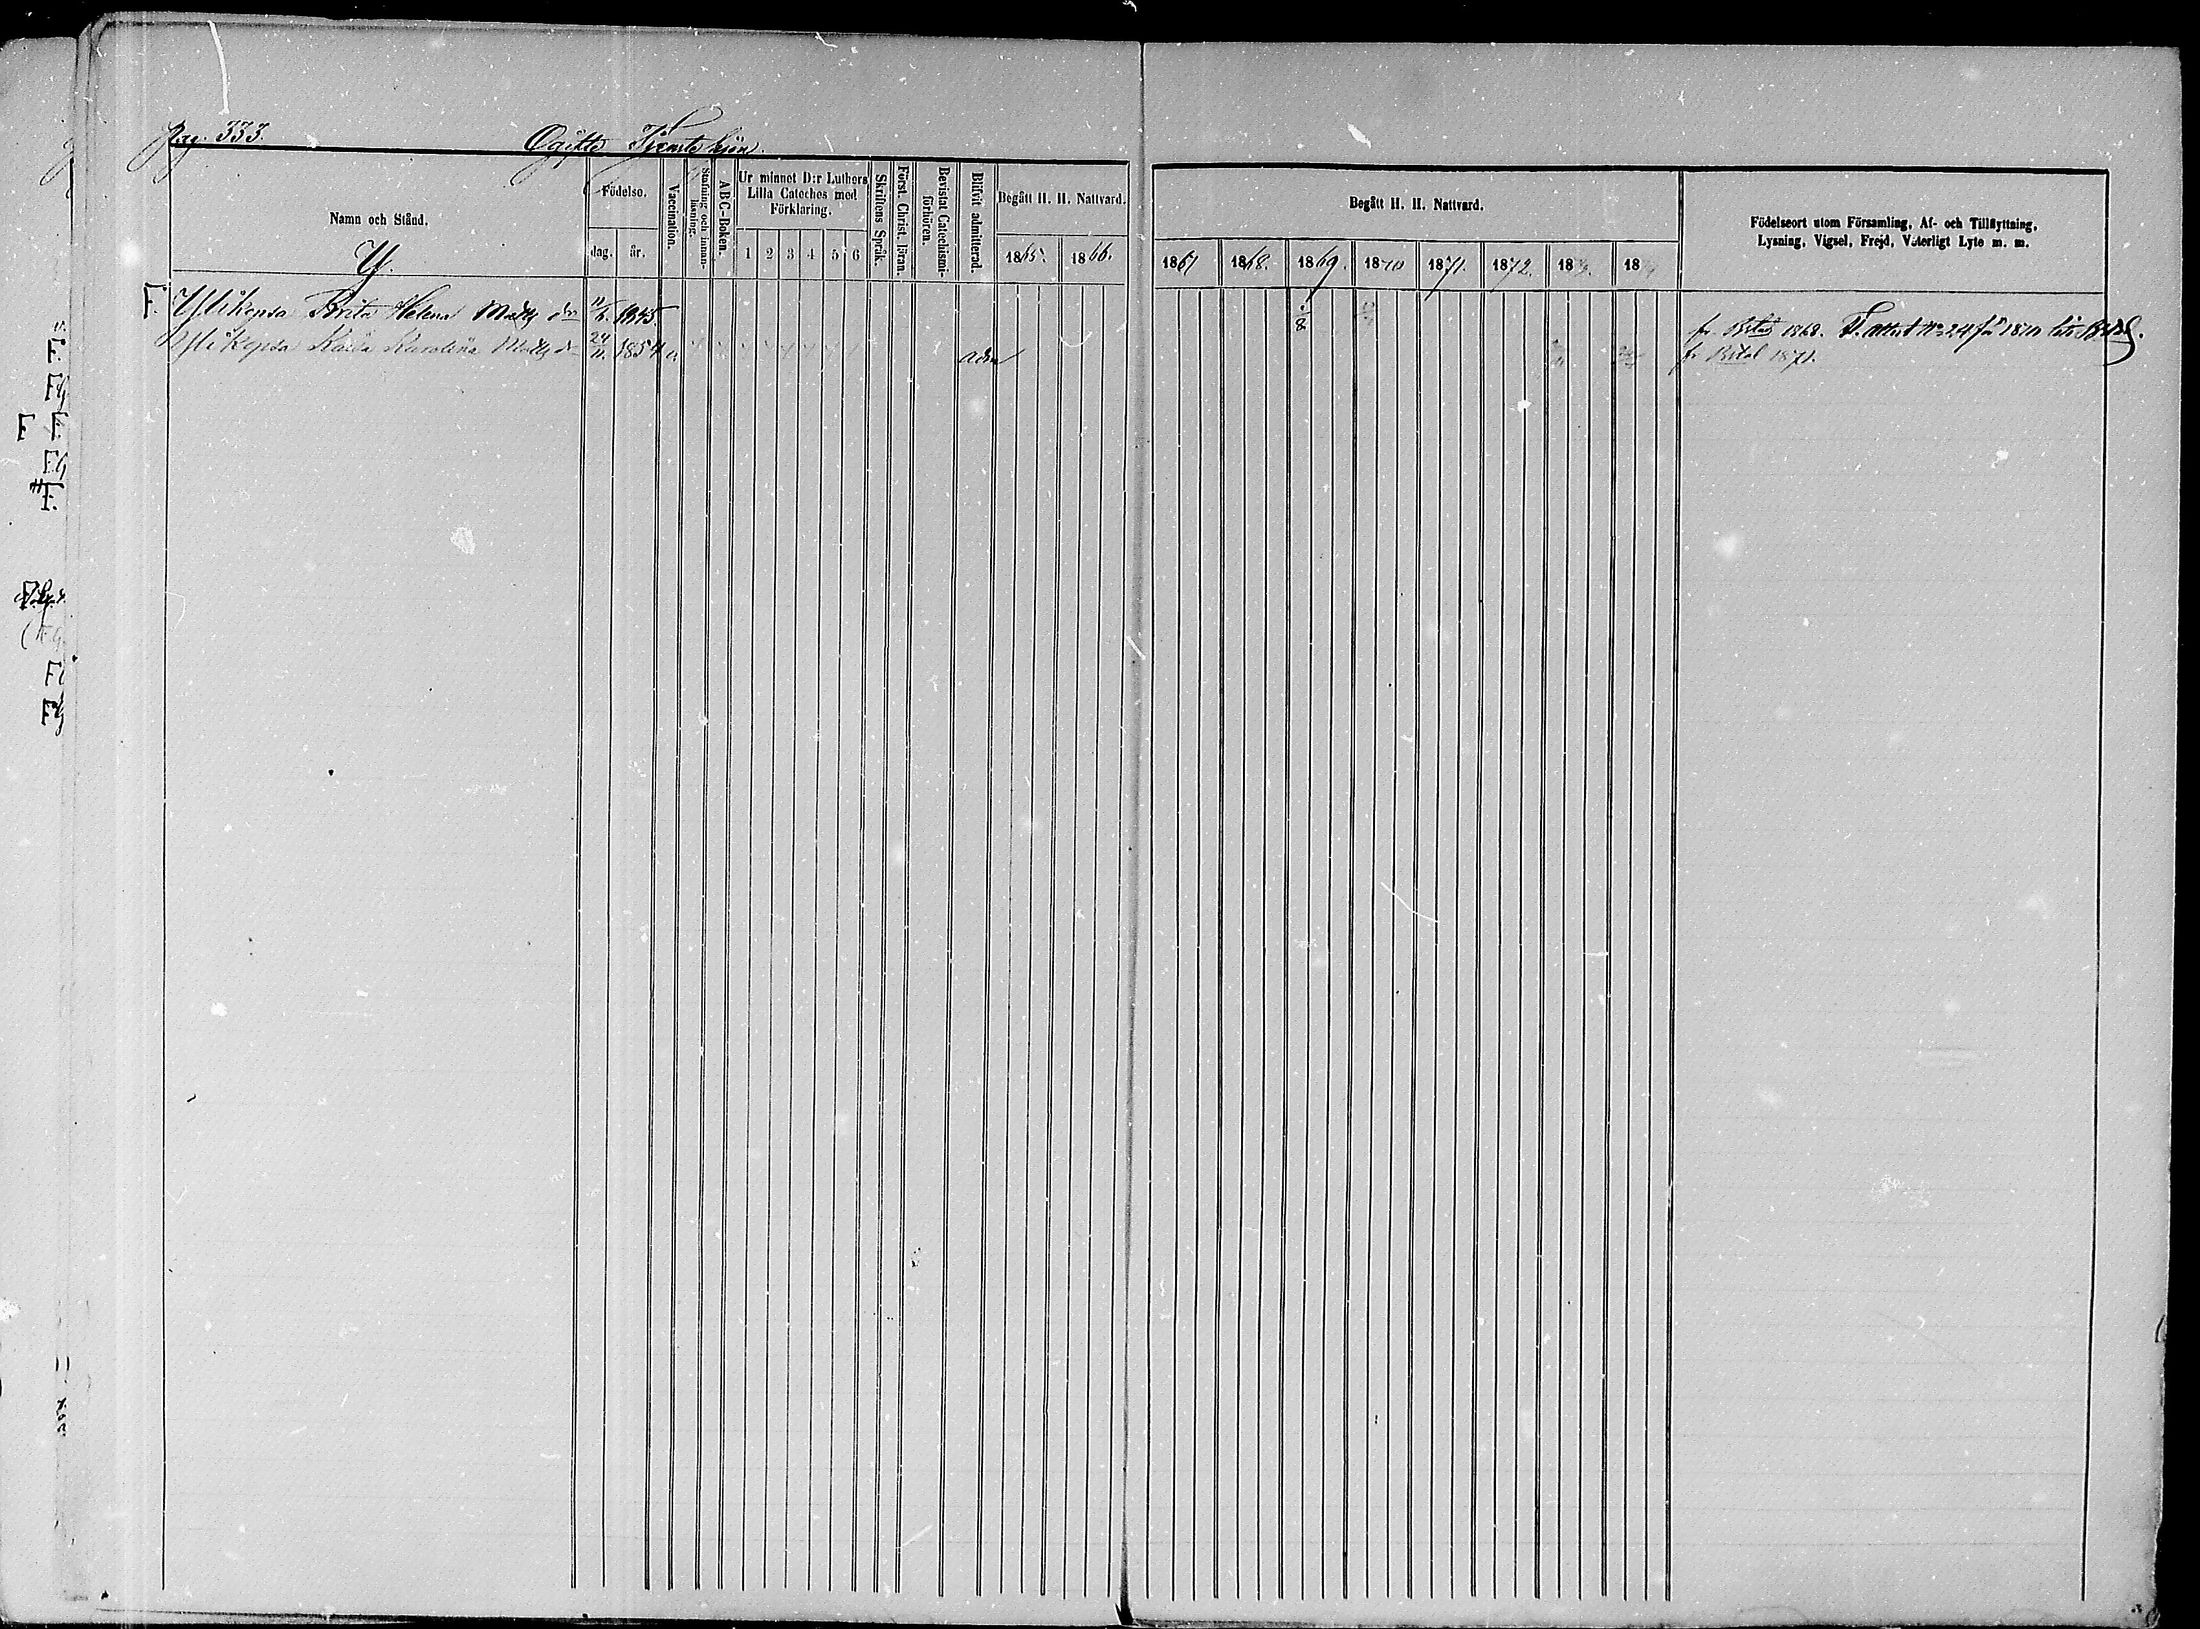 Pag. 333.
Ogifte Tjenstehjon.
Namn och Stånd.
Y.
Födelse.
dag. år.
Vaccination.
Stafning och innan-läsning.
ABC-Boken.
Ur minnet D:r Luthers
Lilla Cateches med
Förklaring.
1 2 3 4 5 6
Skriftens Språk.
Först. Christ. läran.
Bevistat Catechismi-förhören.
Blifvit admitterad.
Begått H. H. Nattvard.
1865. 1866.
Begått H. H. Nattvard.
1867 1868. 1869. 1870 1871. 1872. 18 18
Födelseort utom Församling, Af- och Tillflyttning,
Lysning, Vigsel, Frejd, Vaterligt Lyte m. m.
F. Ylikepsa Brita Helena Matts dr 1845. fr 1868. F. attest No 24 för 1870
Ylikepsa Kaisa Karolina Matts dr 24/11 1854 adm fr 1871.
F.
FG
F F.
FG
F.